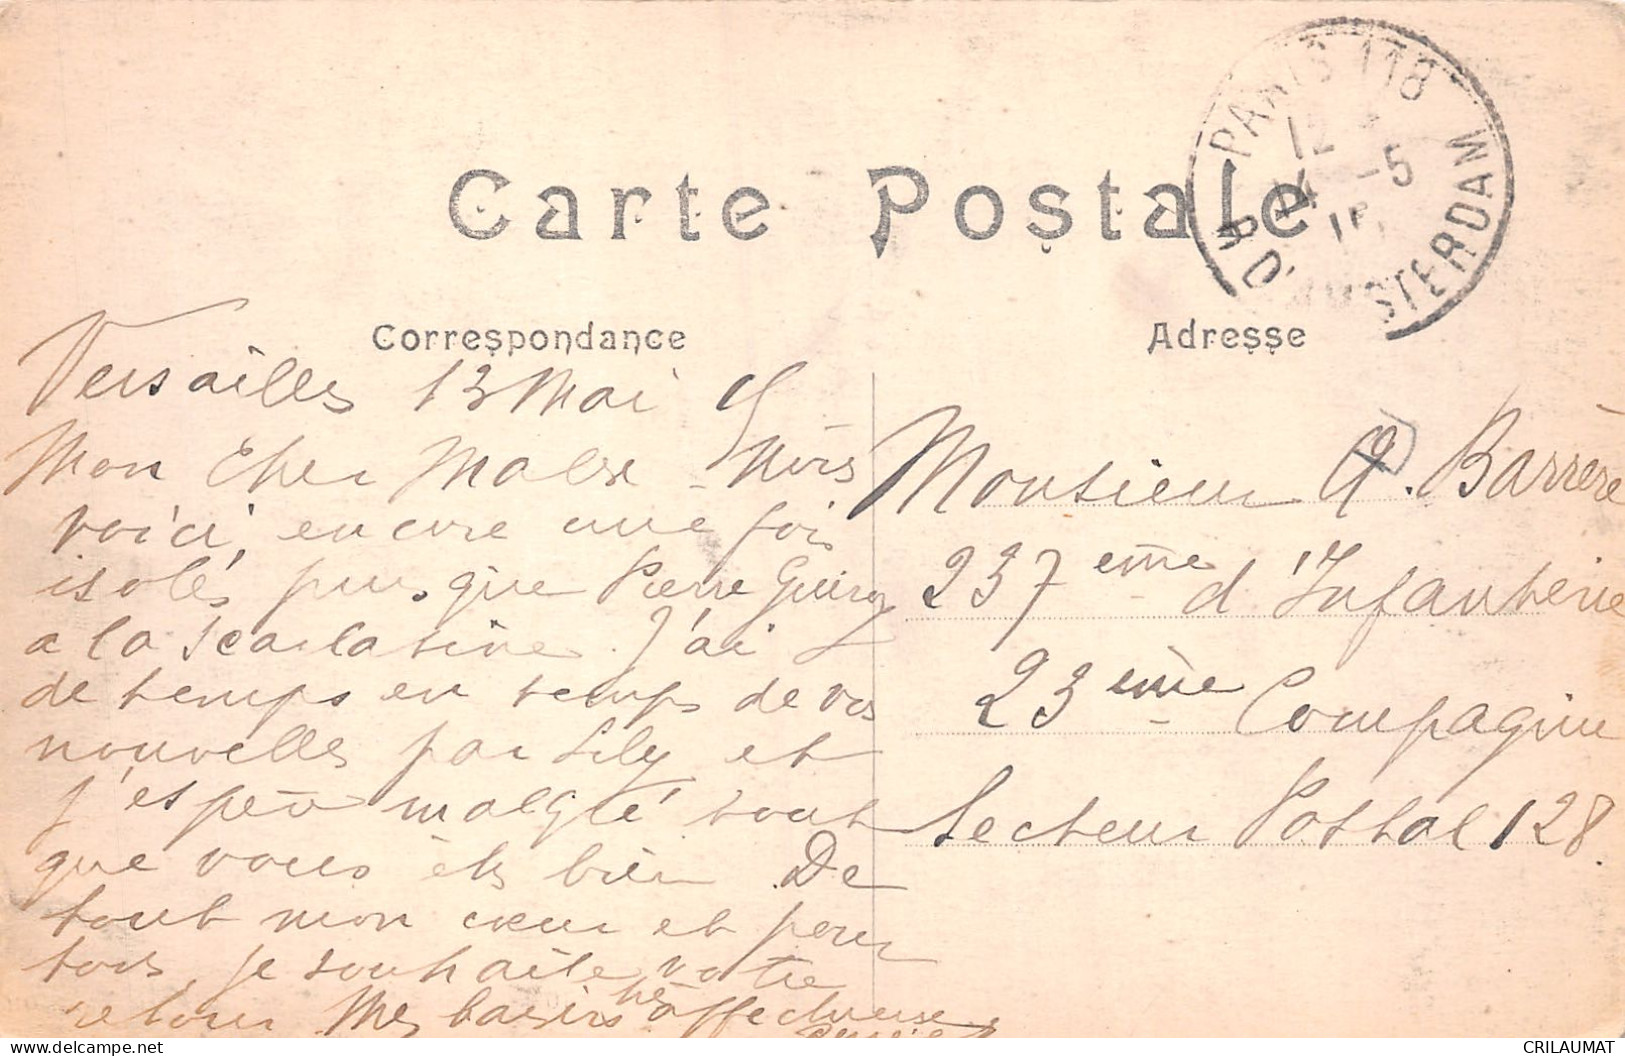 Carte Postale
PARIS 118
12
14 -5
15
R. D'AMSTERDAM
Correspondance
Adresse
Versailles 13 Mai
Mon cher
voici, encore une fois
isolés puisque Pierre
a la scarlatine. J'ai
de temps en temps de vos
nouvelles par Lily et
j'espère malgré tout
que vous êts bien De
tout mon cœur et pour
tous, je souhaite votre
retour Mes baisers
très affectueuse
Monsieur A. Barrère
237 ème d'Infanterie
23 ème Compagnie
Secteur Postal 128.
CRILAUMAT